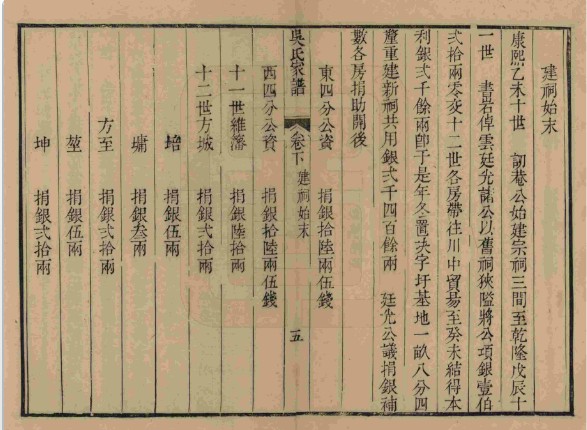 建祠始末
康熙乙未十世 訒菴公始建宗祠三間至乾隆戊辰十
一世 書岩倬雲廷光諸公以舊祠狹隘將公項銀壹伯
弍拾兩零交十二世各房帶往川中貿易至癸未結得本
利銀弍千餘兩卽于是年冬置决字圩基地一畝八分四
釐重建新祠共用銀弍千四百餘兩 廷光公議捐銀補
數各房捐助開後
東四分公資 捐銀拾陸兩伍錢
吳氏家譜 卷下 建祠始末 五
西四分公資 捐銀拾陸兩伍錢
十一世維藩 捐銀陸拾兩
十二世方城 捐銀弍拾兩
增 捐銀伍兩
墉 捐銀叁兩
方至 捐銀弍拾兩
堃 捐銀伍兩
坤 捐銀弍拾兩